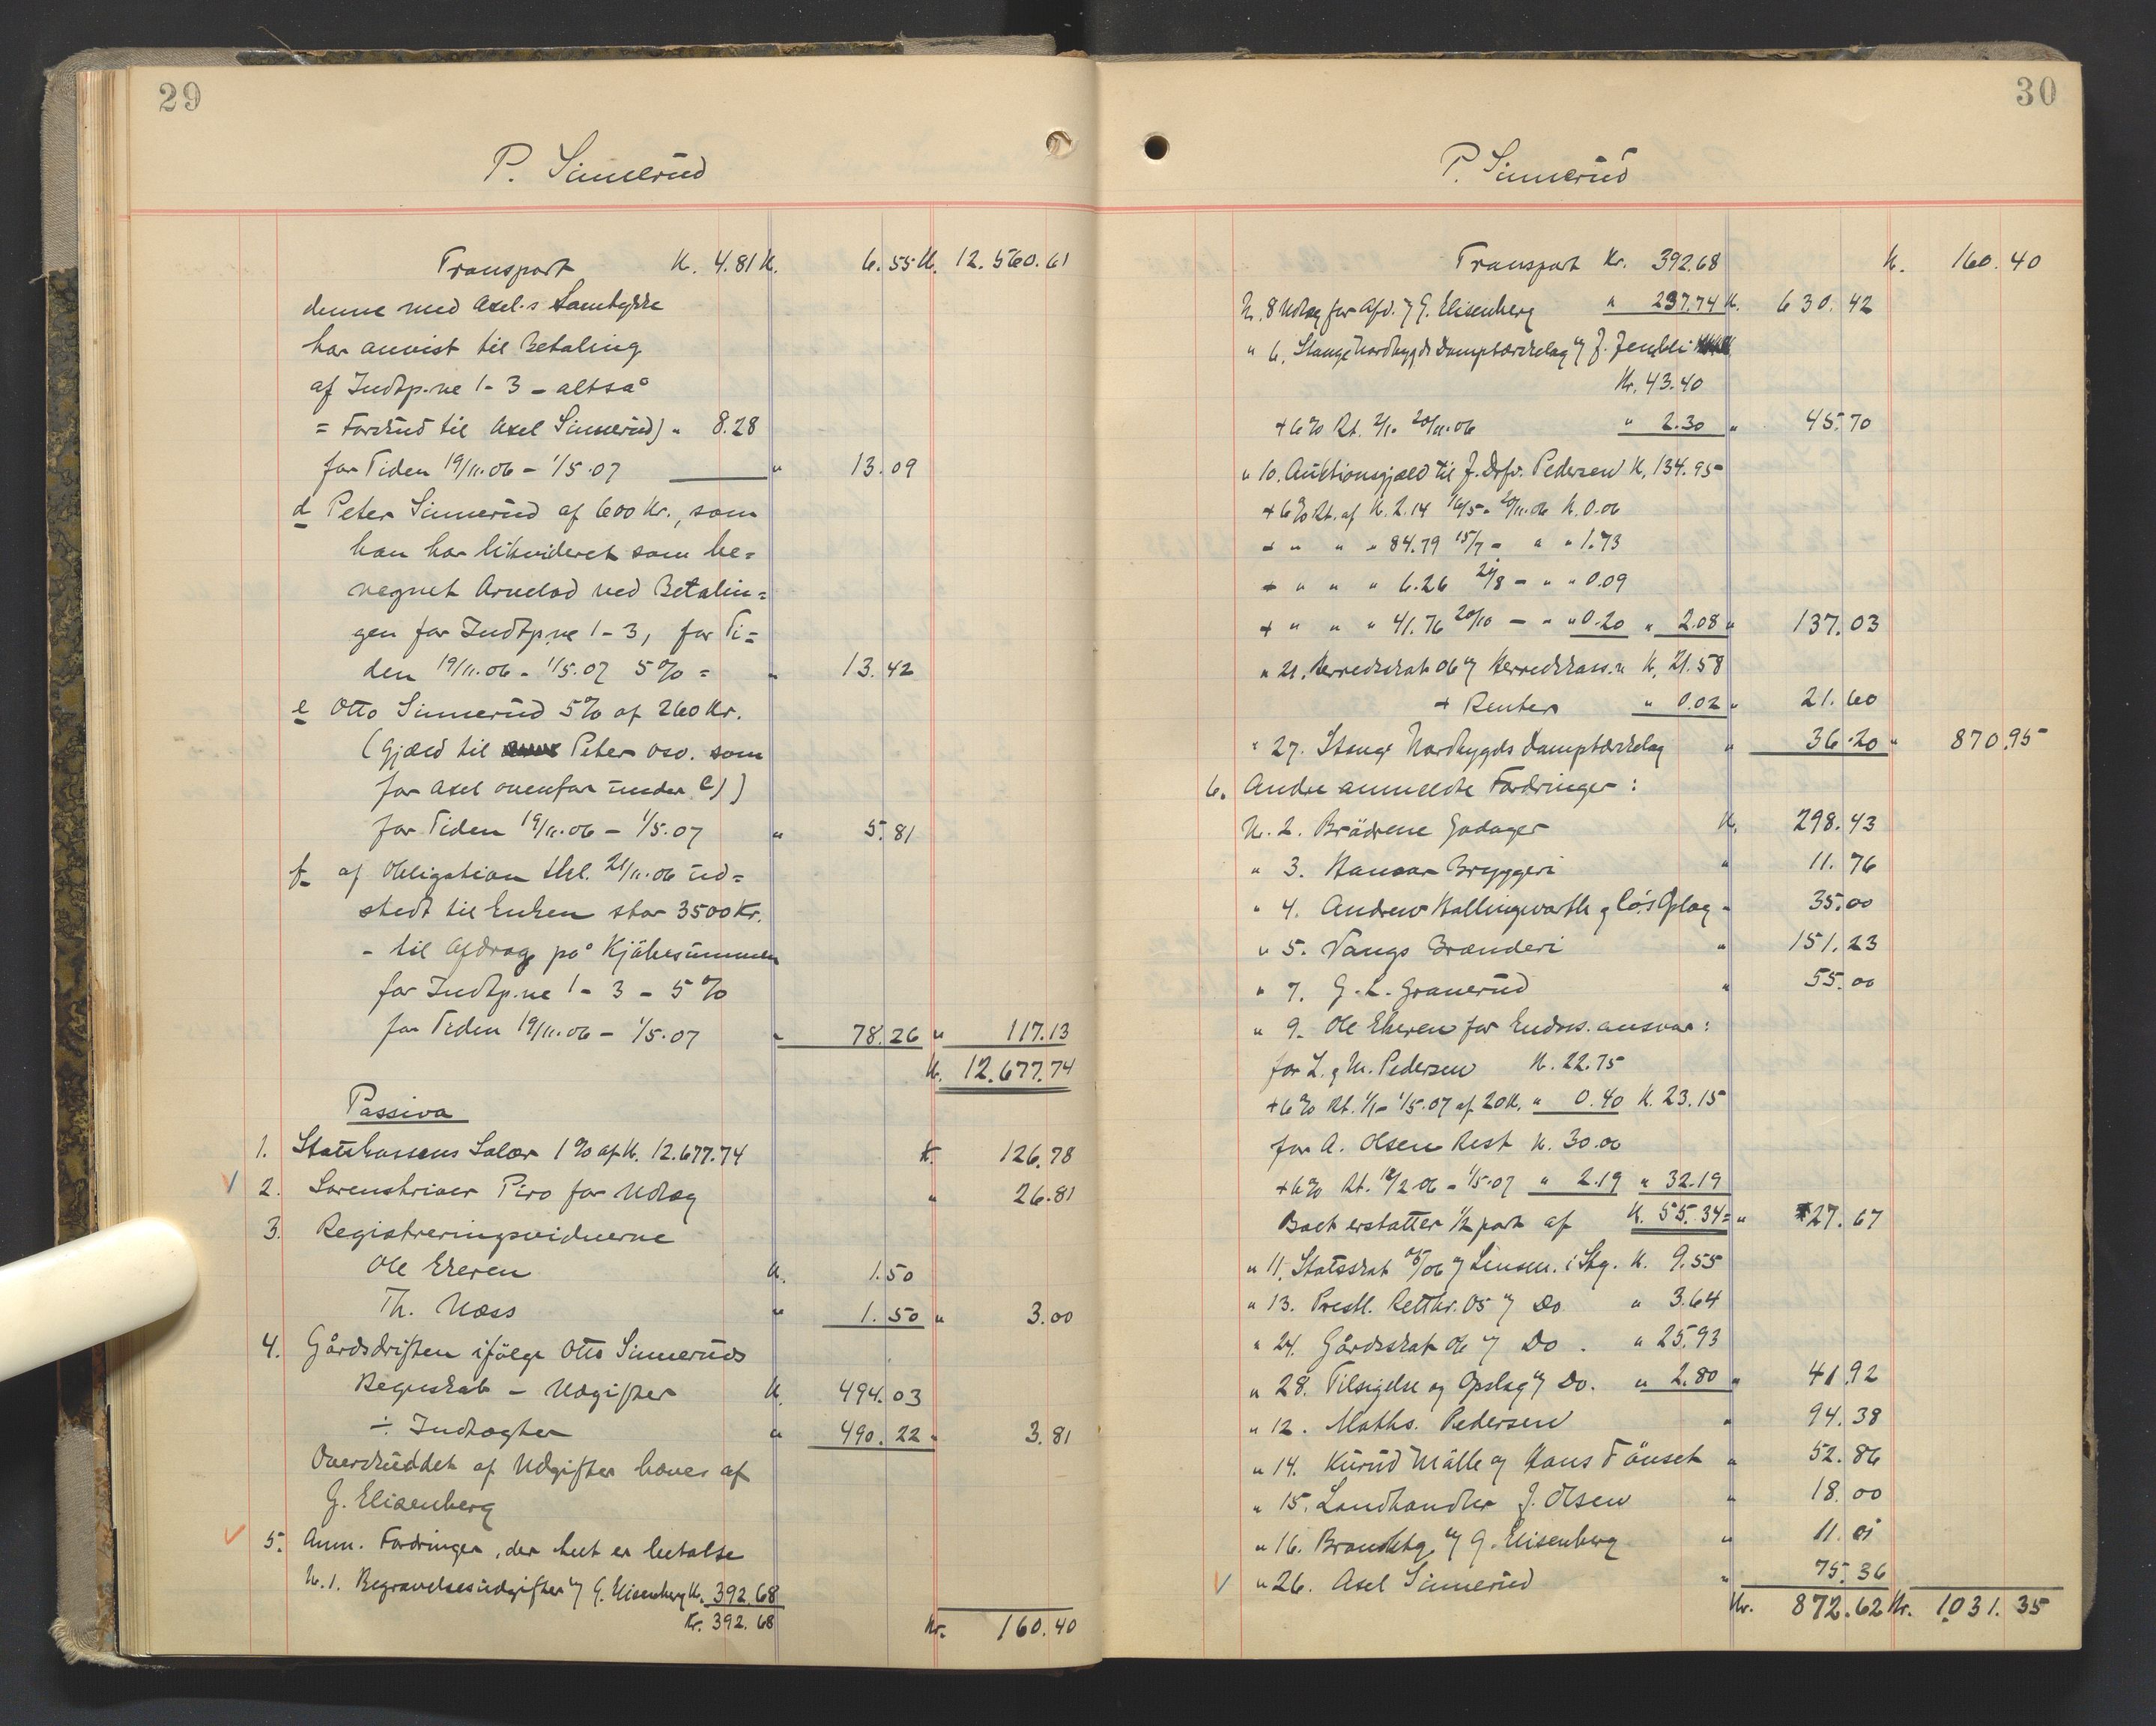 29
P. Sinnerud
Transport K. 4.81 K. 6.55 K. 12.560.61
denne med Axel.s Samtykke
har anvist til Betaling
af Indtp.ne 1-3 - altså
= Forskud til Axel Sinnerud) " 8.28
for Tiden 19/11.06 - 1/5.07 " 13.09
d Peter Sinnerud af 600 Kr., som
han har likvideret som be=
regnet Arvelod ved Betalin=
gen for Indtp.ne 1-3, for Ti=
den 19/11.06 - 1/5.07 5% = " 13.42
e Otto Sinnerud 5% af 260 Kr.
(Gjæld til Peter osv. som
for Axel ovenfor under c))
for Tiden 19/11.06 - 1/5.07 " 5.81
f. af Obligation thl. 21/11.06 ud=
stedt til Enken stor 3500 Kr.
- til Afdrag på Kjöbesummen
for Indtp.ne 1-3 - 5%
for Tiden 19/11.06 - 1/5.07 " 78.26 " 117.13
K. 12.677.74
Passiva
1. Statskassens Salær 1% af K. 12.677.74 K. 126.78
2. Sorenskriver Piro for Udlæg " 26.81
3. Registreringsvidnerne
Ole Ekeren K. 1.50
Th. Næss " 1.50 " 3.00
4. Gårdsdriften ifölge Otto Sinneruds
Regnskab - Udgifter K. 494.03
÷ Indtægter " 490.22 " 3.81
Overskuddet af Udgifter hæves af
G. Elisenberg
5. Anm. Fordringer, der helt er betalte
N. 1. Begravelsesudgifter v/ G. Elisenberg K. 392.68
Kr. 392.68 Kr. 160.40
30
P. Sinnerud
Transport Kr. 392.68 K. 160.40
N. 8 Udlæg for Afd. v/ G. Elisenberg " 237.74 K. 630.42
" 6. Stange Nordbygds Damptærskelag v/ J. Jembli
Kr. 43.40
+ 6% Rt. 2/1 - 20/11.06 " 2.30 " 45.70
" 10. Auktionsgjæld til J. Drfv. Pedersen K. 134.95
+ 6% Rt. af K. 2.14 16/5 - 20/11.06 K. 0.06
+ " " " 84.79 15/7 - " " 1.73
+ " " " 6.26 24/8 - " " 0.09
+ " " " 41.76 20/10 - " " 0.20 " 2.08 " 137.03
" 21. Herredsskat 06 v/ Herredskass.n K. 21.58
+ Renter " 0.02 " 21.60
" 27. Stange Nordbygds Damptærskelag " 36.20 " 870.95
6. Andre anmeldte Fordringer:
N. 2. Brödrene Godager K. 298.43
" 3. Hamar Bryggeri " 11.76
" 4. Andrew Hollingworth & Co's Oplag " 35.00
" 5. Vangs Brænderi " 151.23
" 7. G. L. Granerud " 55.00
" 9. Ole Ekeren for Endoss. ansvar:
for L. & M. Pedersen K. 22.75
+ 6% Rt. 1/1 - 1/5.07 af 20 K. " 0.40 K. 23.15
for A. Olsen Rest K. 30.00
+ 6% Rt. 12/2 06 - 1/5.07 " 2.19 " 32.19
Boet erstatter 1/2 part af K. 55.34 = " 27.67
" 11. Statsskat 05/06 v/ Lensm. i Stg. K. 9.55
" 13. Prestl. Rettkr. 05 v/ Do " 3.64
" 24. Gårdsskat 06 v/ Do. " 25.93
" 28. Tilsigelse og Opslag v/ Do. " 2.80 " 41.92
" 12. Maths. Pedersen " 94.38
" 14. Kurud Mölle v/ Hans Fönset " 52.86
" 15. Landhandler J. Olsen " 18.00
" 16. Brandktg. v/ G. Elisenberg " 11.01
" 26. Axel Sinnerud " 75.36
Kr. 872.62 Kr. 1.031.35